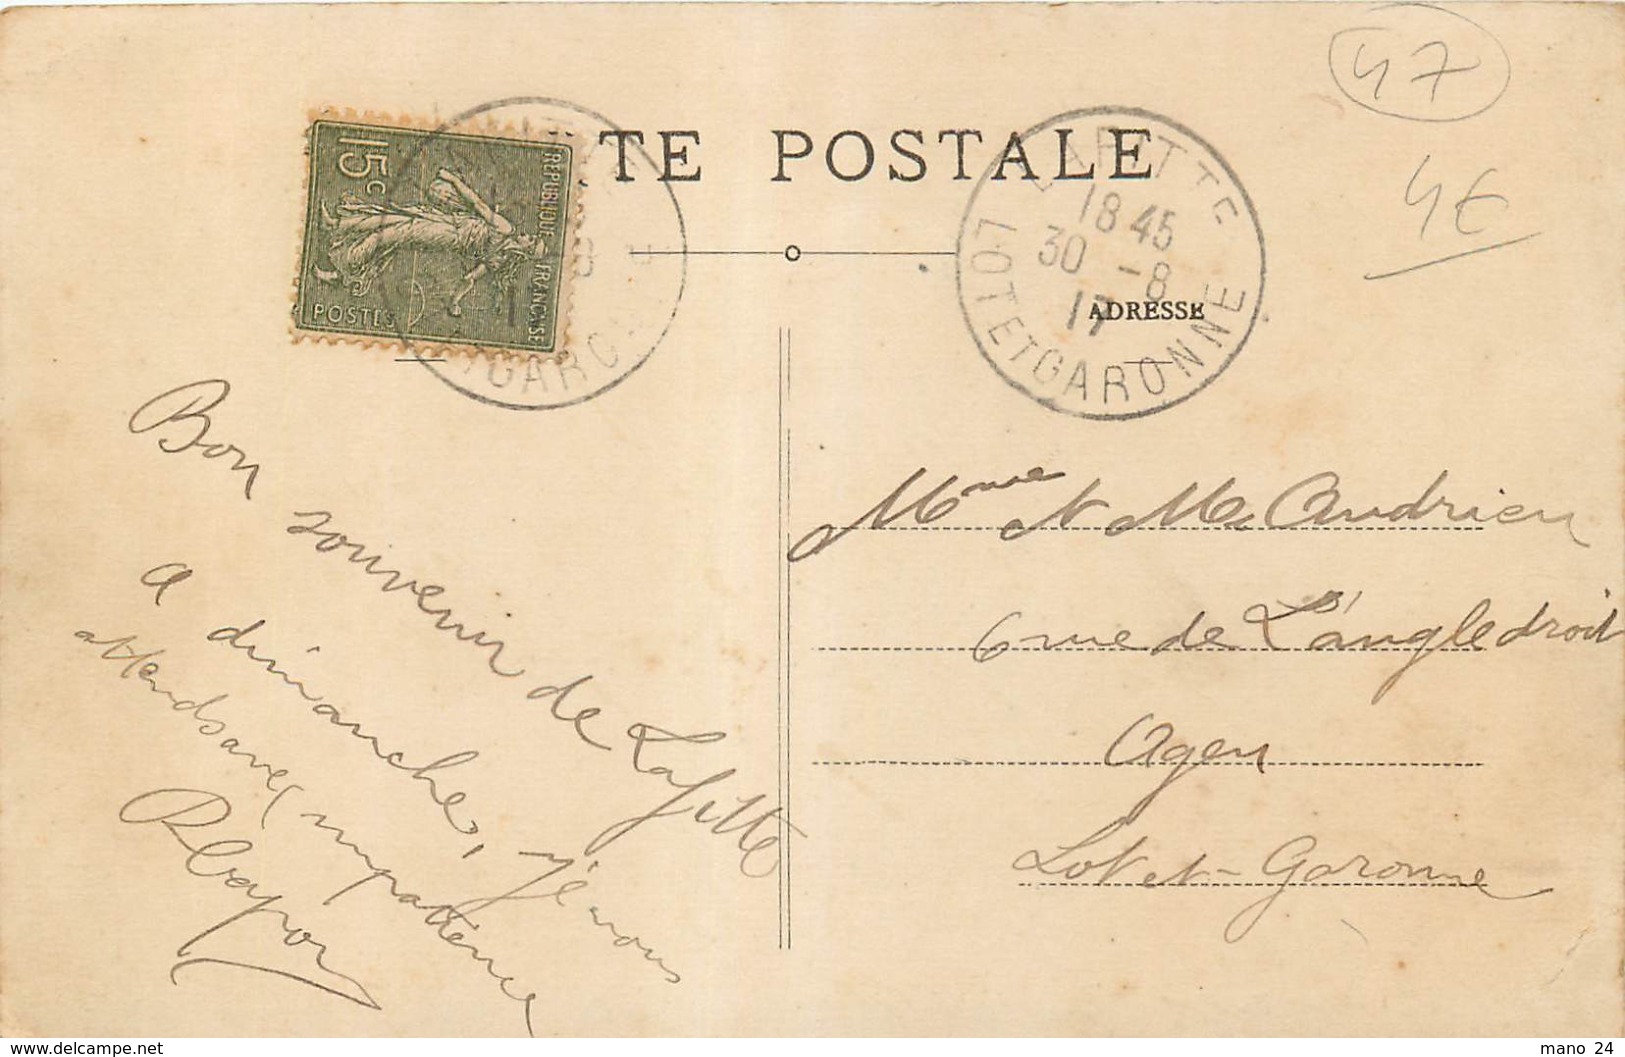 47
4€
TE POSTALE
15c
REPUBLIQUE FRANÇAISE
POSTES
GARONNE
LAFITTE
18 45
30 - 8
17
LOT ET GARONNE
ADRESSE
Bon souvenir de Lafitte
a dimanche, je vous
attends avec impatience
Mme et Mr Audrieu
6 rue de L'angle droit
Agen
Lot et-Garonne
www.delcampe.net
mano_24